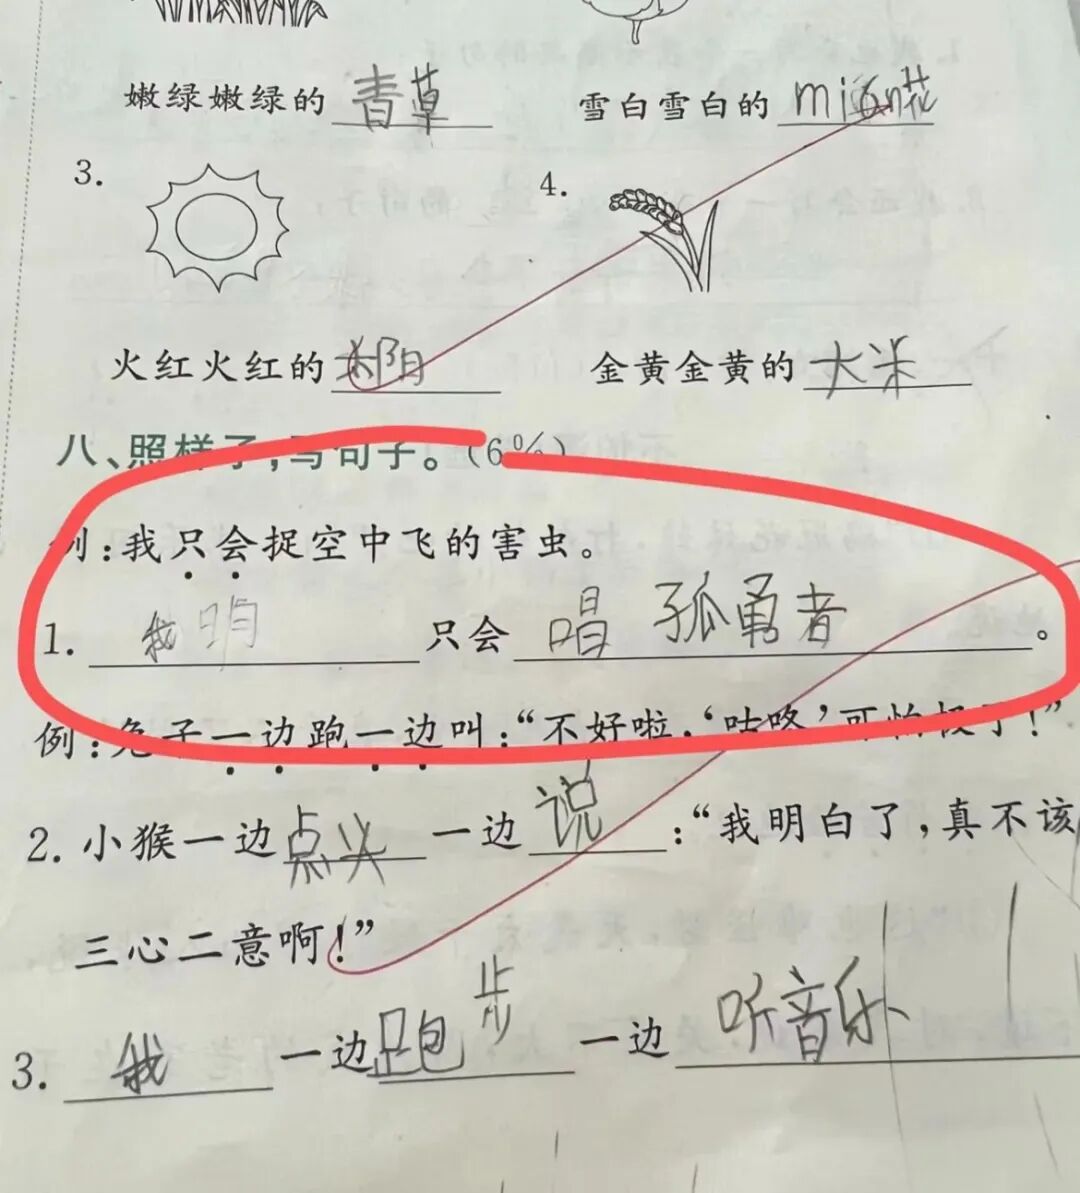 嫩绿嫩绿的青草 雪白雪白的mián花
3. 4.
火红火红的太阳 金黄金黄的大米
八、照样子,写句子。(6%)
例:我只会捉空中飞的害虫。
1. 我 只会 唱 孤勇者。
例:兔子一边跑一边叫:“不好啦,‘咕咚’可怕极了!”
2. 小猴一边点头一边说:“我明白了,真不该
三心二意啊!”
3. 我一边跑步一边听音乐